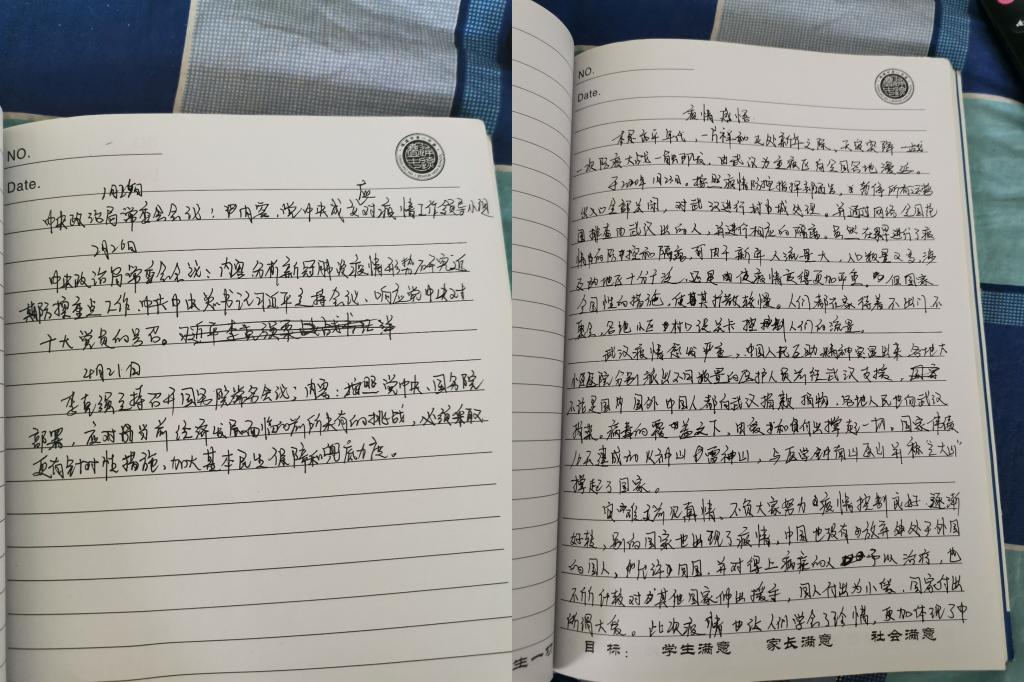 NO.
Date.
1月25日
中央政治局常委会会议：内容，党中央成立应对疫情工作领导小组
2月26日
中央政治局常委会会议：内容分析新冠肺炎疫情形势研究近
期防控重点工作。中共中央总书记习近平主持会议，响应党中央对
广大党员的号召。
4月21日
李克强主持召开国务院常务会议；内容：按照党中央、国务院
部署，应对当前经济发展面临的前所未有的挑战，必须采取
更有针对性措施，加大基本民生保障和兜底力度。
NO.
Date.
疫情感悟
本是太平年代，一片祥和正处新年之际、天灾突降
一次防疫大战一触即发，由武汉为重疫区向全国各地漫延。
于2020年1月23日。按照疫情防控指挥部通告，暂停所有运营
出入口全部关闭，对武汉进行封城处理。并通过网络全国范
围排查由武汉出的人，并进行相应的隔离。虽然在果进行了疫
情的防控和隔离，可由于新年人流量大，人口数量又多涉
及的地区十分广泛，还是由使疫情变得更加严重。但国家
全国性的措施，使其扩散较慢。人们都在家待着不出门不
聚会，各地小区村口设关卡控制人们的流量。
武汉疫情愈发严重，中国人民互助精神突显出来各地大
小医院分别派出不同数量的医护人员前往武汉支援，
不论是国内国外中国人都向武汉捐款捐物，各地人民也向武汉
捐菜。病毒的覆盖之下，由政如何出撑起一切，国家体很
八不建成如火神山雷神山，与医学钟南山医山并称三大山
撑起了国家。
灾难之前见真情、不负大家努力疫情控制良好逐渐
好转，别的国家也出现了疫情，中国也没有放弃处于外国
的国人，允许回国并对得上病症的人予以治疗，也
不所计较对其他国家伸出援手，国人付出为小爱，国家付出
所谓大爱。此次疫情也让人们学会了珍惜，更加体现了中
目标： 学生满意 家长满意 社会满意